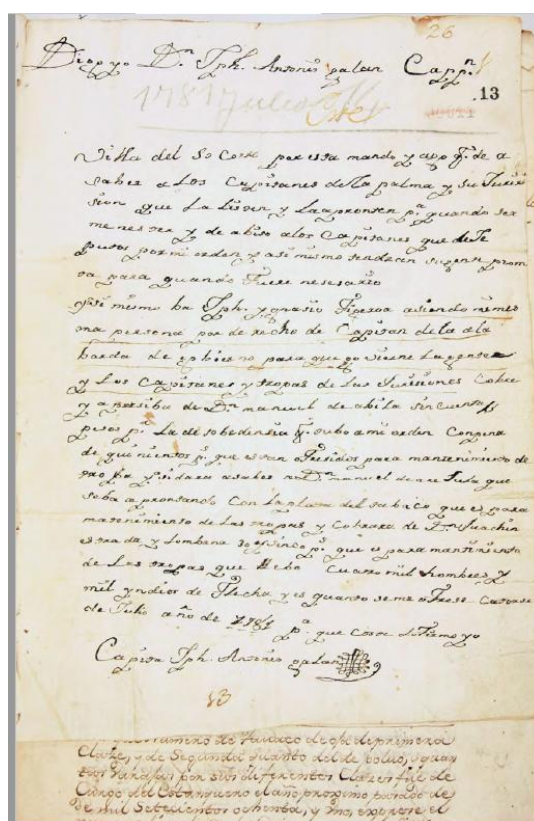 26
Digo yo Dn Jph. Antonio galan Cappn
1781 Julio
.13
Villa del So Corr por essa mando y ago qe. de a
saber a Los Capitanes de la palma y su Jurisi
sion que La listen y La apronten pa quando sea
menester y de abiso a los Capitanes que de Je
putos por mi orden y asi mismo tendran su gente prom
ta para quando fuere nesesario
Jph. ygnasio asiendo mi mes
ma persona por derecho de Capitan de la ala
barda de para que govierne La gente
y Los Capitanes y tropas de Las Jurisiones Cobre
y a persiba de Dn manuel de abila sincuenta ps
pesos pr. La desobedensia qe. tubo a mi orden Con pena
de quinientos ps. que estan para mantenimiento de
tropa y sidara a saber a Dn manuel de que
baba aprontando Con La plata del tabaco que es para
mantenimiento de Las tropas y Cobrara de Dn Juachin
estrada y Lombana sinco ps. que es para mantinimiento
de Las tropas que llebo Cuatro mil hombres y
mil yndios de flecha y es quanto se me ofrese Catorse
de Julio año de 1781 pa que Coste lo firmo yo
Capitan Jph. Antonio galan
13
numero de tavaco de de primera
Clase, y de Segunda quanto del de bolas, y quan
tas por sus diferentes Clases fue de
Cargo del Estanquero el año proximo pasado de
de mil Setecientos ochenta, y uno, exprese el